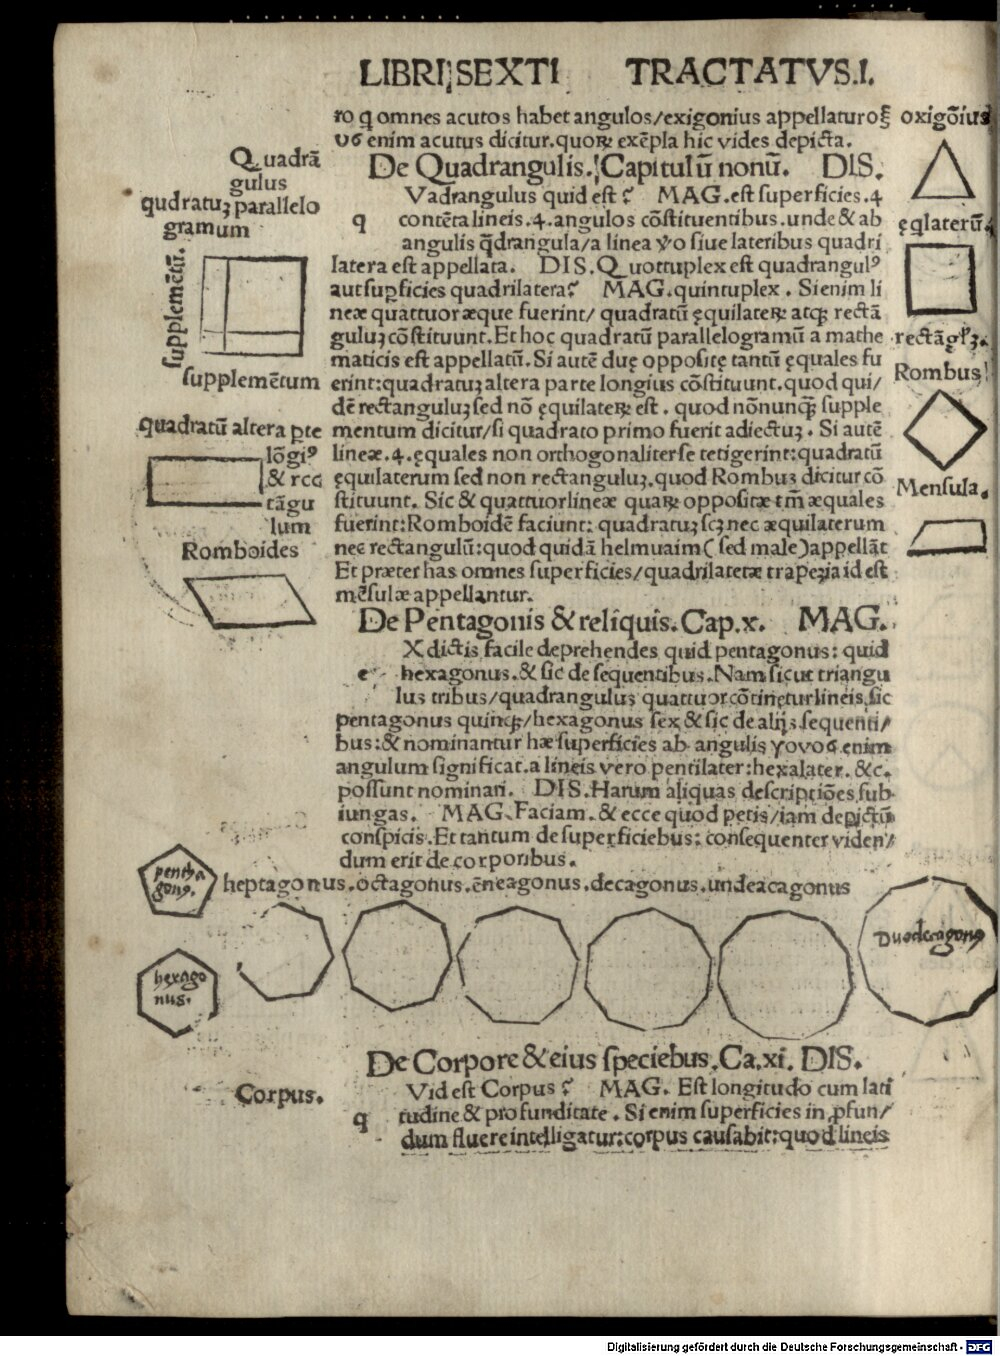 LIBRI SEXTI TRACTATVS.I.
ro q omnes acutos habet angulos/exigonius appellatur oξ
υσ enim acutus dicitur.quoꝝ exēpla hic vides depicta.
oxigōius
De Quadrangulis. Capitulū nonū. DIS.
Vadrangulus quid est ? MAG.est superficies.4
q contēta lineis.4.angulos cōstituentibus.unde & ab
angulis q̄drangula/a linea ỽo siue lateribus quadri
latera est appellata. DIS.Quottuplex est quadrangulꝰ
aut suꝑficies quadrilatera? MAG.quintuplex. Si enim li
neæ quattuor æque fuerint/ quadratū ęquilateꝝ atqꝫ rectā
guluꝫ cōstituunt. Et hoc quadratū parallelogramū a mathe
maticis est appellatū. Si autē duę oppositę tantū ęquales fu
erint:quadratuꝫ altera parte longius cōstituunt.quod qui/
dē rectanguluꝫ sed nō ęquilateꝝ est. quod nōnunqꝫ supple
mentum dicitur/si quadrato primo fuerit adiectuꝫ. Si autē
lineæ.4.ęquales non orthogonaliter se tetigerint:quadratū
ęquilaterum sed non rectanguluꝫ.quod Rombus dicitur cō
stituunt. Sic & quattuor lineæ quaꝝ oppositæ tm̄ æquales
fuerint:Romboidē faciunt: quadratuꝫ scꝫ nec æquilaterum
nec rectangulū:quod quidā helmuaim ( sed male)appellāt
Et præter has omnes superficies/quadrilateræ trapezia id est
mēsulæ appellantur.
Quadrā
gulus
qudratuꝫ parallelo
gramum
supplemētū.
supplemētum
quadratū altera ꝑte
lōgiꝰ
& rec
tāgu
lum
Romboides
ęqlaterū
Rombus
Mensula.
De Pentagonis & reliquis. Cap.x. MAG.
X dictis facile deprehendes quid pentagonus: quid
e hexagonus.& sic de sequentibus. Nam sicut triangu
lus tribus/quadranguluꝫ quattuor cōtinetur lineis.sic
pentagonus quinqꝫ/hexagonus sex & sic de alijs sequenti/
bus:& nominantur hæ superficies ab angulis γονοσ enim
angulum significat.a lineis vero pentilater:hexalater. &c.
possunt nominari. DIS.Harum aliquas descriptiōes sub
iungas. MAG.Faciam. & ecce quod petis/iam depictū
conspicis. Et tantum de superficiebus: consequenter viden/
dum erit de corporibus.
pentha
gonꝰ.
heptagonus.octagonus.ēneagonus.decagonus.undeacagonus
Duodecagonꝰ
hexago
nus.
De Corpore & eius speciebus. Ca.xi. DIS.
Corpus.
Vid est Corpus ? MAG. Est longitudo cum lati
q tudine & profunditate. Si enim superficies in ꝓfun/
dum fluere intelligatur:corpus causabit:quod lineis